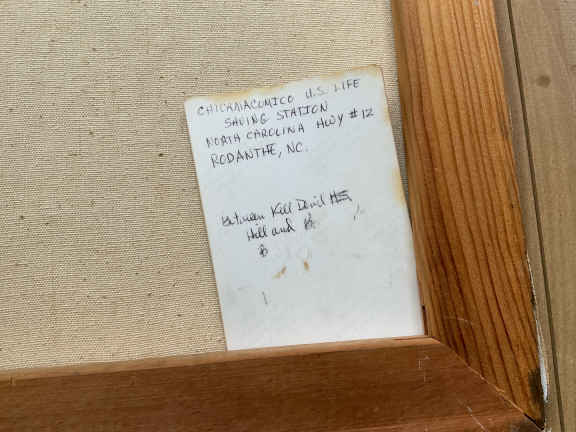 CHICAMACOMICO U.S. LIFE
SAVING STATION
NORTH CAROLINA HWY #12
RODANTHE, NC.
Between Kill Devil
Hill and